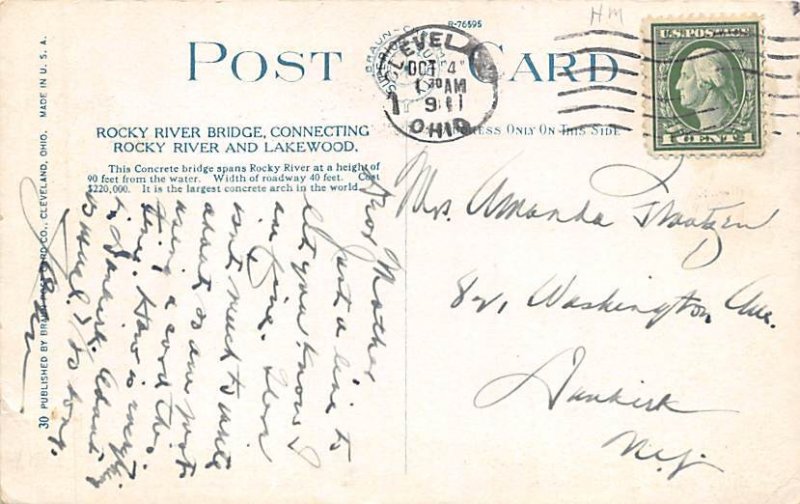 HM
R-76595
POST CARD
CLEVELAND
OCT 4
1 30 AM
1911
OHIO
U.S. POSTAGE
1 CENT 1
ROCKY RIVER BRIDGE, CONNECTING
ROCKY RIVER AND LAKEWOOD,
This Concrete bridge spans Rocky River at a height of
90 feet from the water. Width of roadway 40 feet. Cost
$220,000. It is the largest concrete arch in the world.
ADDRESS ONLY ON THIS SIDE
30 PUBLISHED BY BRAUN POST CARD CO., CLEVELAND, OHIO. MADE IN U. S. A.
Dear Mother
Just a line to
let you know I
am fine.
wont much to write
about so am just
using a card this
time. How is everything
in Dunkirk.
as usual. So long.
Mrs. Amanda
821 Washington Ave.
Dunkirk
N.Y.